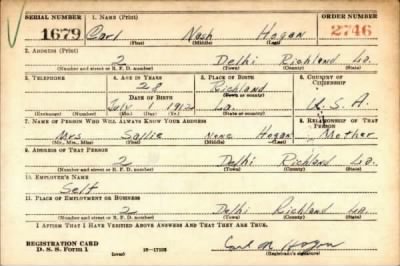 SERIAL NUMBER 1. NAME (Print) ORDER NUMBER
1679 Carl Nash Hogan 2746
(First) (Middle) (Last)
2. ADDRESS (Print)
2 Delhi Richland La.
(Number and street or R. F. D. number) (Town) (County) (State)
3. TELEPHONE 4. AGE IN YEARS 5. PLACE OF BIRTH 6. COUNTRY OF CITIZENSHIP
28 Richland
DATE OF BIRTH (Town or county)
July 1 1912 La. U.S.A.
(Exchange) (Number) (Mo.) (Day) (Yr.) (State or country)
7. NAME OF PERSON WHO WILL ALWAYS KNOW YOUR ADDRESS 8. RELATIONSHIP OF THAT PERSON
Mrs. Sallie None Hogan Mother
(Mr., Mrs., Miss) (First) (Middle) (Last)
9. ADDRESS OF THAT PERSON
2 Delhi Richland La.
(Number and street or R. F. D. number) (Town) (County) (State)
10. EMPLOYER'S NAME
Self
11. PLACE OF EMPLOYMENT OR BUSINESS
2 Delhi Richland La.
(Number and street or R. F. D. number) (Town) (County) (State)
I AFFIRM THAT I HAVE VERIFIED ABOVE ANSWERS AND THAT THEY ARE TRUE.
REGISTRATION CARD
D. S. S. Form 1 (over) 16-17105 Carl N Hogan
(Registrant's signature)